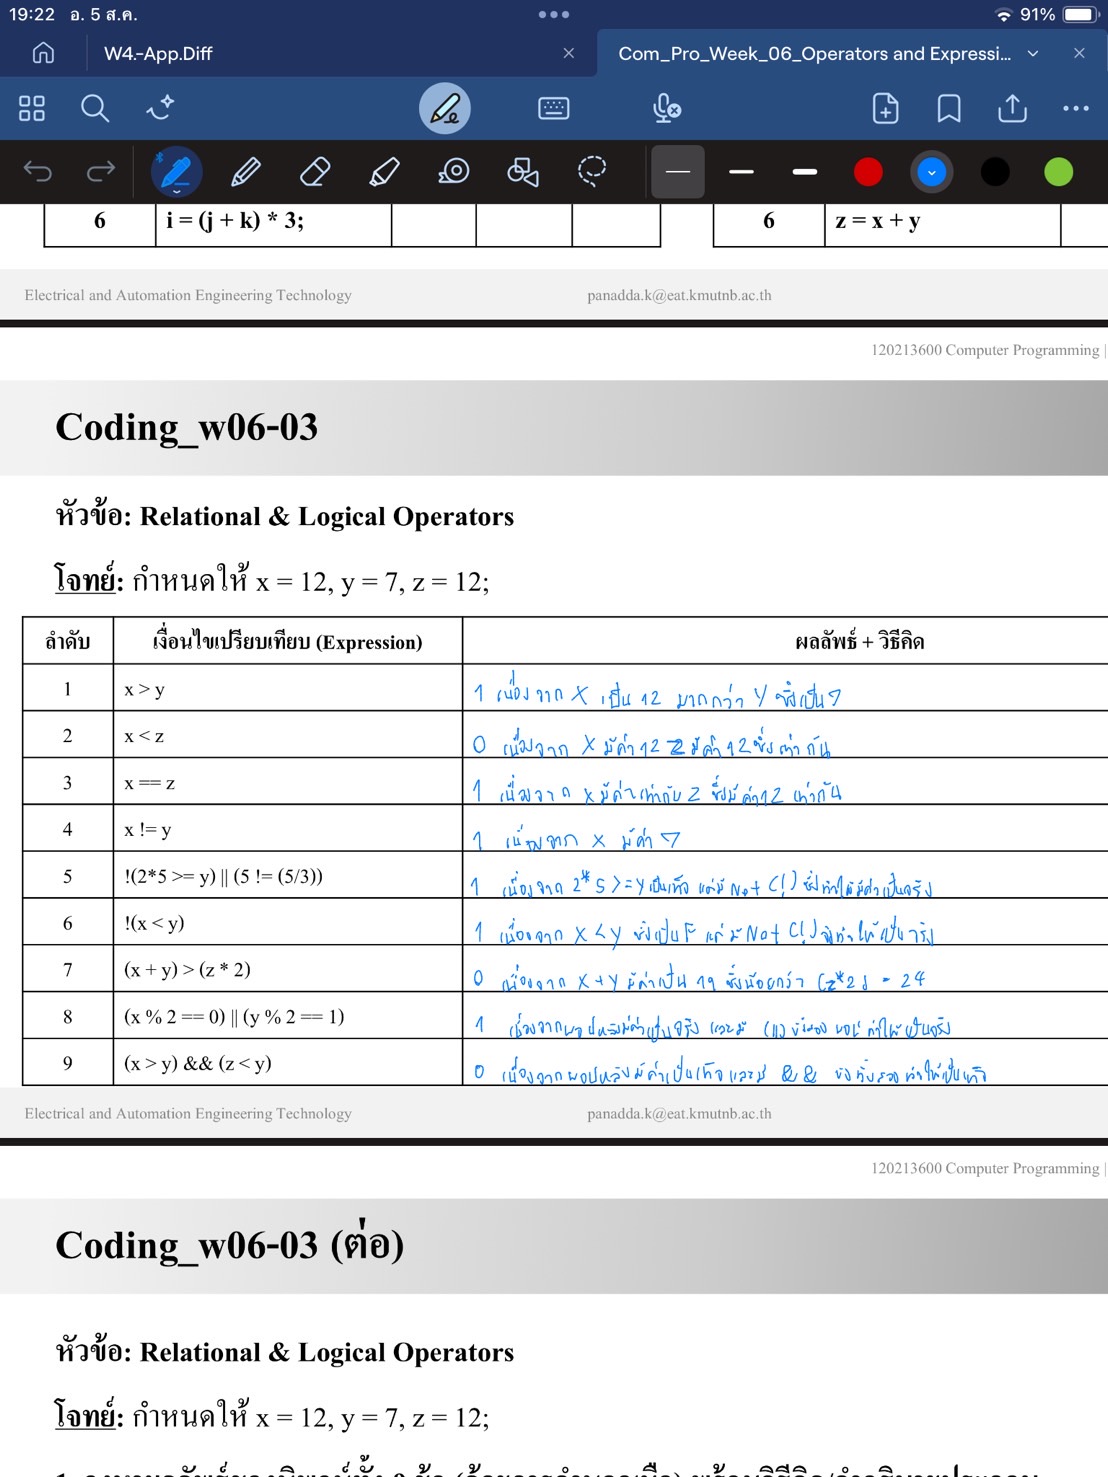 19:22 อ. 5 ส.ค.
91%
W4.-App.Diff
Com_Pro_Week_06_Operators and Expressi...
6 i = (j + k) * 3;
6 z = x + y
Electrical and Automation Engineering Technology
panadda.k@eat.kmutnb.ac.th
120213600 Computer Programming |
Coding_w06-03
หัวข้อ: Relational & Logical Operators
โจทย์: กำหนดให้ x = 12, y = 7, z = 12;
ลำดับ เงื่อนไขเปรียบเทียบ (Expression) ผลลัพธ์ + วิธีคิด
1 x > y 1 เนื่องจาก X เป็น 12 มากกว่า Y ซึ่งเป็น 7
2 x < z 0 เนื่องจาก X มีค่า 12 Z มีค่า 12 ซึ่งเท่ากัน
3 x == z 1 เนื่องจาก x มีค่าเท่ากับ Z ซึ่งมีค่า 12 เท่ากัน
4 x != y 1 เนื่องจาก x มีค่า 7
5 !(2*5 >= y) || (5 != (5/3)) 1 เนื่องจาก 2*5 >= y เป็นเท็จ แต่มี Not (!) ซึ่งทำให้มีค่าเป็นจริง
6 !(x < y) 1 เนื่องจาก X < y ซึ่งเป็น F แต่มี Not (!) จึงทำให้เป็นจริง
7 (x + y) > (z * 2) 0 เนื่องจาก X + Y มีค่าเป็น 19 ซึ่งน้อยกว่า (z*2) = 24
8 (x % 2 == 0) || (y % 2 == 1) 1 เนื่องจากพจน์หลังมีค่าเป็นจริง และมี (||) ทำให้เป็นจริง
9 (x > y) && (z < y) 0 เนื่องจากพจน์หลังมีค่าเป็นเท็จ และมี && ทำให้เป็นเท็จ
Electrical and Automation Engineering Technology
panadda.k@eat.kmutnb.ac.th
120213600 Computer Programming |
Coding_w06-03 (ต่อ)
หัวข้อ: Relational & Logical Operators
โจทย์: กำหนดให้ x = 12, y = 7, z = 12;